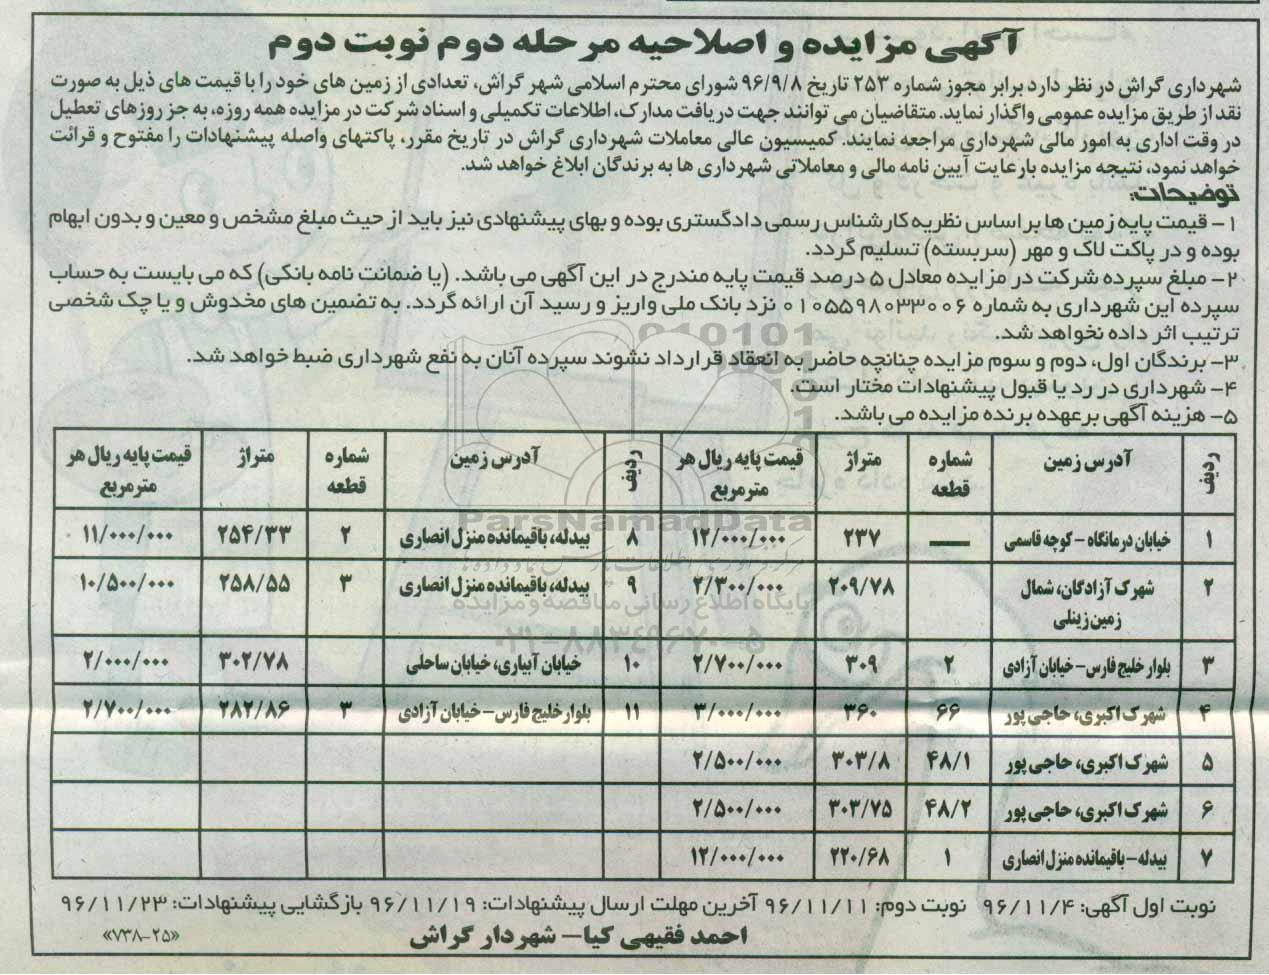 آگهی مزایده و اصلاحیه مرحله دوم نوبت دوم
شهرداری گراش در نظر دارد برابر مجوز شماره ۲۵۳ تاریخ ۹۶/۹/۸ شورای محترم اسلامی شهر گراش، تعدادی از زمین های خود را با قیمت های ذیل به صورت
نقد از طریق مزایده عمومی واگذار نماید. متقاضیان می توانند جهت دریافت مدارک، اطلاعات تکمیلی و اسناد شرکت در مزایده همه روزه، به جز روزهای تعطیل
در وقت اداری به امور مالی شهرداری مراجعه نمایند. کمیسیون عالی معاملات شهرداری گراش در تاریخ مقرر، پاکتهای واصله پیشنهادات را مفتوح و قرائت
خواهد نمود، نتیجه مزایده بارعایت آیین نامه مالی و معاملاتی شهرداری ها به برندگان ابلاغ خواهد شد.
توضیحات:
۱- قیمت پایه زمین ها بر اساس نظریه کارشناس رسمی دادگستری بوده و بهای پیشنهادی نیز باید از حیث مبلغ مشخص و معین و بدون ابهام
بوده و در پاکت لاک و مهر (سربسته) تسلیم گردد.
۲- مبلغ سپرده شرکت در مزایده معادل ۵ درصد قیمت پایه مندرج در این آگهی می باشد. (یا ضمانت نامه بانکی) که می بایست به حساب
سپرده این شهرداری به شماره ۰۱۰۵۵۹۸۰۳۳۰۰۶ نزد بانک ملی واریز و رسید آن ارائه گردد. به تضمین های مخدوش و یا چک شخصی
ترتیب اثر داده نخواهد شد.
۳- برندگان اول، دوم و سوم مزایده چنانچه حاضر به انعقاد قرارداد نشوند سپرده آنان به نفع شهرداری ضبط خواهد شد.
۴- شهرداری در رد یا قبول پیشنهادات مختار است.
۵- هزینه آگهی برعهده برنده مزایده می باشد.
ردیف آدرس زمین شماره قطعه متراژ قیمت پایه ریال هر مترمربع ردیف آدرس زمین شماره قطعه متراژ قیمت پایه ریال هر مترمربع
۱ خیابان درمانگاه - کوچه قاسمی — ۲۳۷ ۱۲/۰۰۰/۰۰۰ ۸ بیدله، باقیمانده منزل انصاری ۲ ۲۵۴/۳۳ ۱۱/۰۰۰/۰۰۰
۲ شهرک آزادگان، شمال زمین زینلی ۲۰۹/۷۸ ۲/۳۰۰/۰۰۰ ۹ بیدله، باقیمانده منزل انصاری ۳ ۲۵۸/۵۵ ۱۰/۵۰۰/۰۰۰
۳ بلوار خلیج فارس - خیابان آزادی ۲ ۳۰۹ ۲/۷۰۰/۰۰۰ ۱۰ خیابان آبیاری، خیابان ساحلی ۳۰۲/۷۸ ۲/۰۰۰/۰۰۰
۴ شهرک اکبری، حاجی پور ۶۶ ۳۶۰ ۳/۰۰۰/۰۰۰ ۱۱ بلوار خلیج فارس - خیابان آزادی ۳ ۲۸۲/۸۶ ۲/۷۰۰/۰۰۰
۵ شهرک اکبری، حاجی پور ۴۸/۱ ۳۰۳/۸ ۲/۵۰۰/۰۰۰
۶ شهرک اکبری، حاجی پور ۴۸/۲ ۳۰۳/۷۵ ۲/۵۰۰/۰۰۰
۷ بیدله - باقیمانده منزل انصاری ۱ ۲۲۰/۶۸ ۱۲/۰۰۰/۰۰۰
نوبت اول آگهی: ۹۶/۱۱/۴ نوبت دوم: ۹۶/۱۱/۱۱ آخرین مهلت ارسال پیشنهادات: ۹۶/۱۱/۱۹ بازگشایی پیشنهادات: ۹۶/۱۱/۲۳
احمد فقیهی کیا - شهردار گراش
«۷۳۸-۲۵»
ParsNamadData
پایگاه اطلاع رسانی مناقصه و مزایده
۰۲۱-۸۸۳۴۹۶۷۰-۵